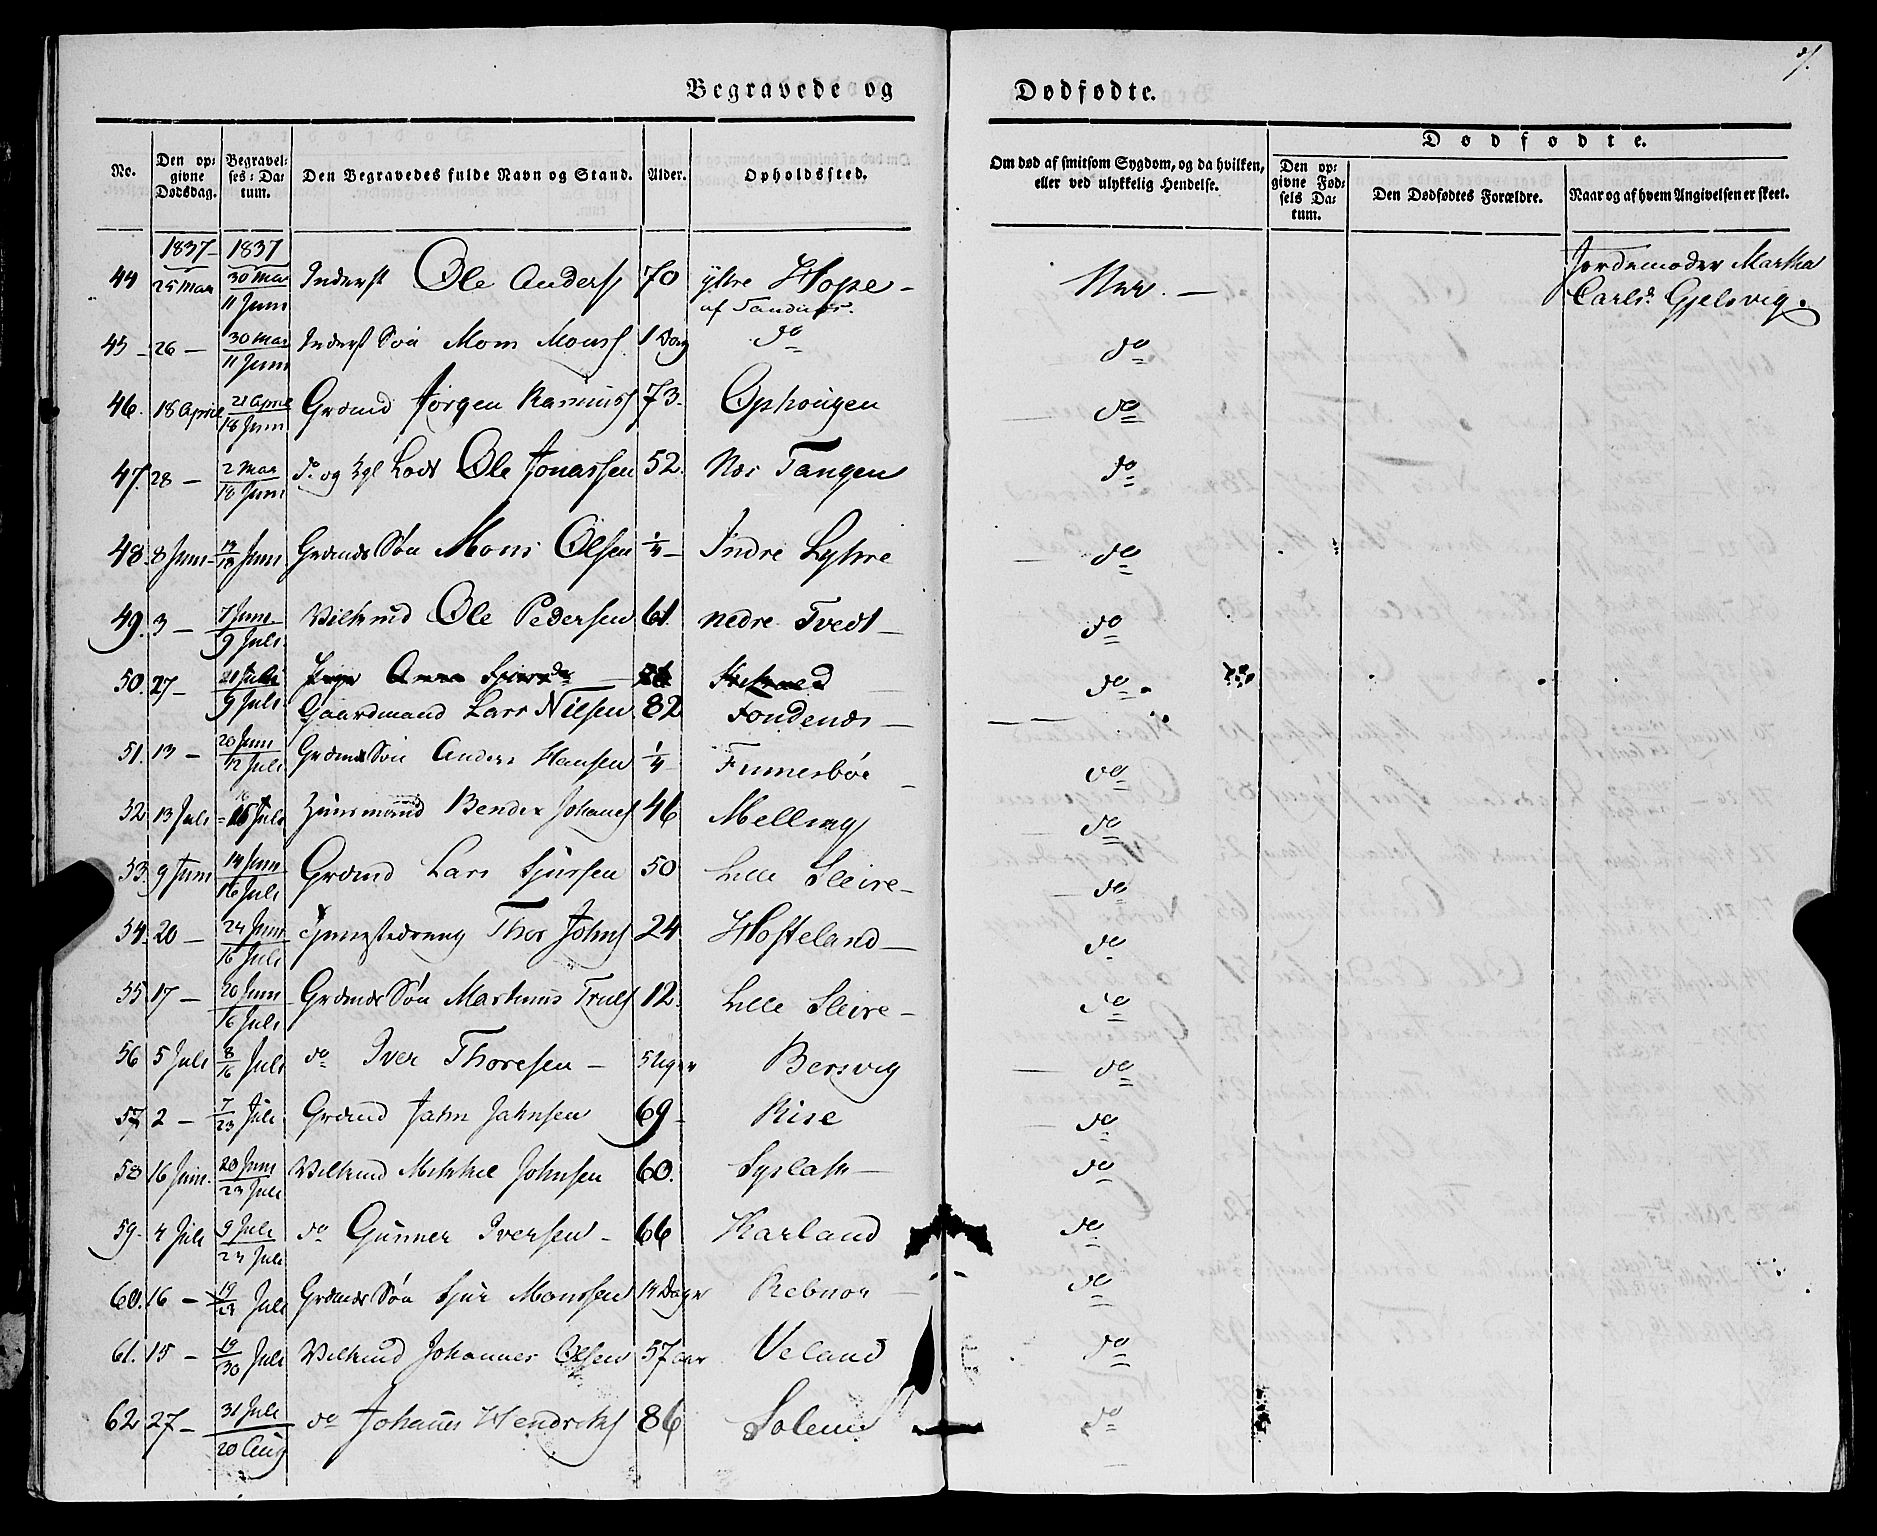 Begravede og Dødfødte.
No. Den opgivne Dødsdag. Begravelses-Datum. Den Begravedes fulde Navn og Stand. Alder. Opholdssted. Om død af smitsom Sygdom, og da hvilken, eller ved ulykkelig Hendelse.
Dødfødte.
Den opgivne Fødsels Datum. Den Dødfødtes Forældre. Naar og af hvem Angivelsen er skeet.
1837 1837
44 25 Mai 30 Mai 11 Juni Inderst Ole Anders 70 ytre Hope Nei. Jordemoder Martha Carlsd. Gjelsvig.
45 26 — 30 Mai 11 Juni Inderst Søn Mons Mons 1 Dag do do
46. 18 April 21 April 18 Juni Grdmd Jørgen Rasmus 73. Ophougen do
47. 28 — 2 Mai 18 Juni do og Ole Jonassen 52. Nær Tangen do
48. 8 Juni 13 18 Juni Grdmds Søn Mons Olsen 1/4 Indre Lyhre do
49. 3 — 7 Juni 9 Juli Vilkmd Ole Pedersen 61 nedre Tvedt do
50. 27 — 9 Juli do
Gaardmand Lars Nilsen 82 Fondenæs
51. 13 — 20 Juni 12 Juli Grdmds Søn Anders Hansen 1/4 Fumesbøe do
52 13 Juli 16 Juli Huusmand Bendix Johannes 46 Melling do
53 9 Juni 14 Juni 16 Juli Grdmd Lars Sjursen 50 Lille Sleire do
54. 20 — 24 Juni 16 Juli Thor Johns 24 Hosteland do
55 17 — 20 Juni 16 Juli Grdmds Søn Martinus Truls 12. Lille Sleire do
56 5 Juli 8 16 Juli do Iver Thoresen 5 Uger Bersvig do
57 2 — 7 23 Juli Grdmd Jahn Jahnsen 69 Rise do
58 16 Juni 20 Juni 23 Juli Vilkmd Mikkel Johnsen 60. Syslak do
59. 4 Juli 9 Juli 23 Juli do Gunner Iversen 66 Harland do
60. 16 — 19 23 Juli Grdmds Søn Sjur Monssen 14 Dage Rebnor do
61. 15 — 19 30 Juli Vilkmd Johannes Olsen 57 aar Veland do
62 27 — 31 Juli 20 Aug do Johannes Hendriks 86 Solem do